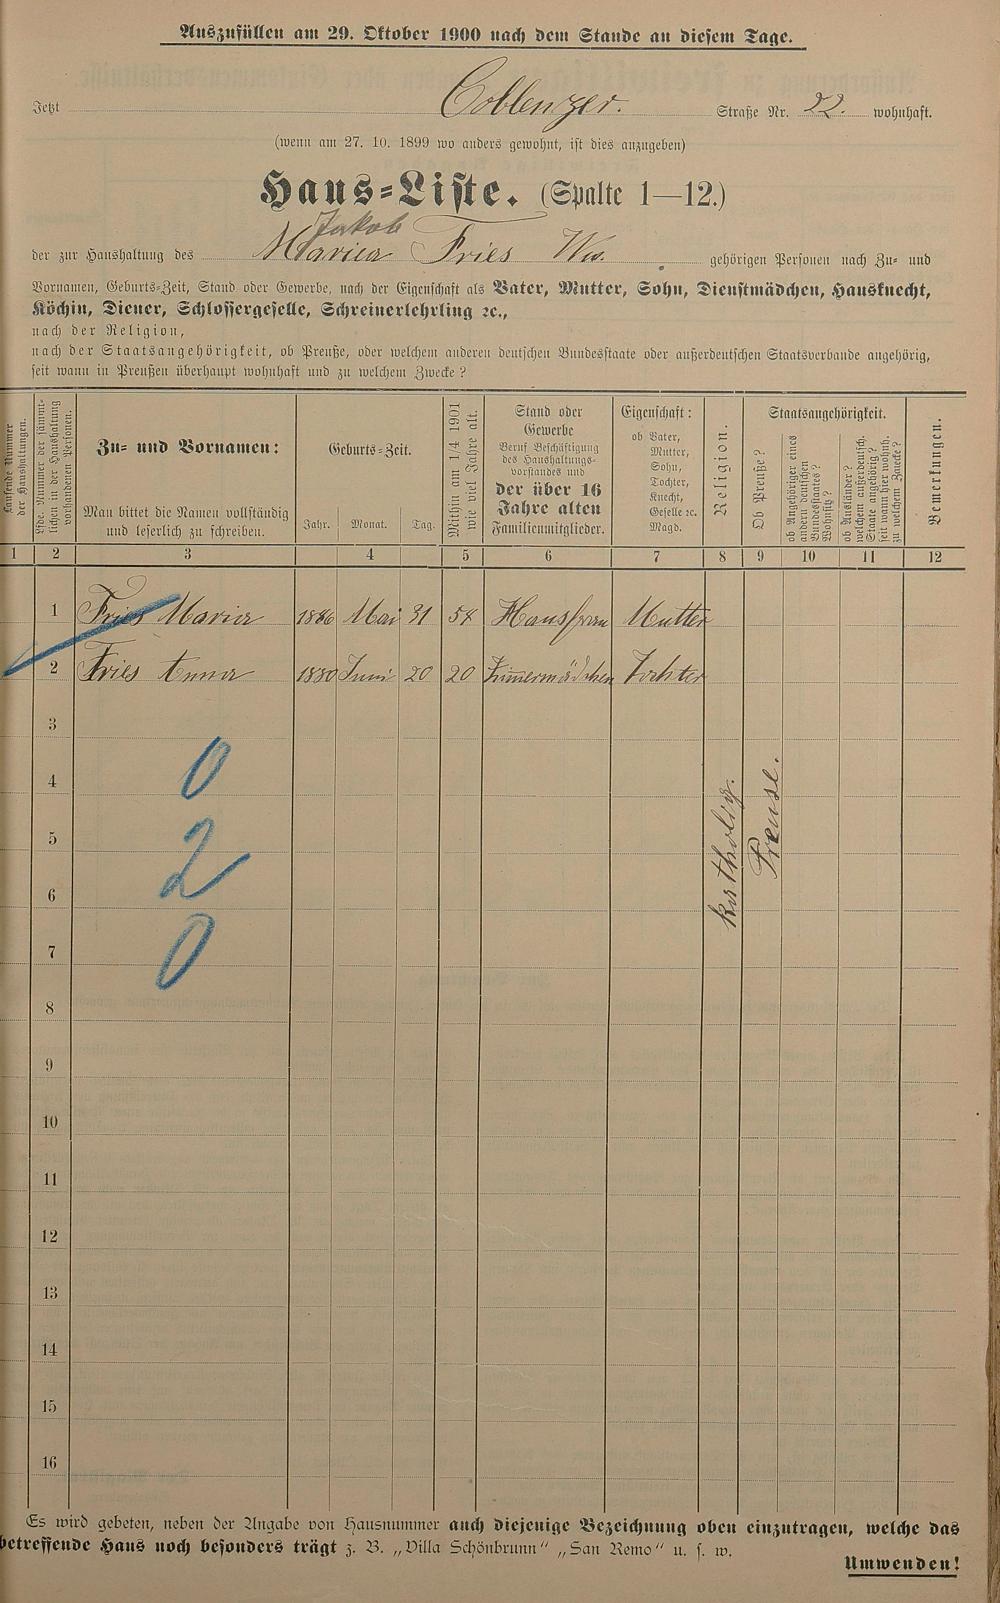 Auszufüllen am 29. Oktober 1900 nach dem Stande an diesem Tage.
Jetzt Coblenzer. Straße Nr. 22. wohnhaft.
(wenn am 27. 10. 1899 wo anders gewohnt, ist dies anzugeben)
Haus-Liste. (Spalte 1—12.)
Jakob
der zur Haushaltung des Maria Fries Ww. gehörigen Personen nach Zu- und
Vornamen, Geburts-Zeit, Stand oder Gewerbe, nach der Eigenschaft als Vater, Mutter, Sohn, Dienstmädchen, Hausknecht,
Köchin, Diener, Schlossergeselle, Schreinerlehrling ꝛc.,
nach der Religion,
nach der Staatsangehörigkeit, ob Preuße, oder welchem anderen deutschen Bundesstaate oder außerdeutschen Staatsverbande angehörig,
seit wann in Preußen überhaupt wohnhaft und zu welchem Zwecke?
Laufende Nummer der Haushaltungen.
Lfde. Nummer der sämmtlichen in der Haushaltung vorhandenen Personen.
Zu- und Vornamen:
Man bittet die Namen vollständig
und leserlich zu schreiben.
Geburts-Zeit.
Jahr. Monat. Tag.
Mithin am 1/4 1901 wie viel Jahre alt.
Stand oder
Gewerbe
Beruf Beschäftigung
des Haushaltungs-
vorstandes und
der über 16
Jahre alten
Familienmitglieder.
Eigenschaft:
ob Vater,
Mutter,
Sohn,
Tochter,
Knecht,
Geselle ꝛc.
Magd.
Religion.
Staatsangehörigkeit.
Ob Preuße?
ob Angehöriger eines andern deutschen Bundesstaates? Wohnsitz?
ob Ausländer? welchem außerdeutsch. Staate angehörig? seit wann hier wohnh. zu welchem Zwecke?
Bemerkungen.
1 2 3 4 5 6 7 8 9 10 11 12
1 Fries Maria 1846 Mai 31 54 Hausfrau Mutter
2 Fries Anna 1880 Juni 20 20 Zimmermädchen Tochter
kathol͏ig. Preuse.
3
4
5
6
7
8
9
10
11
12
13
14
15
16
0
2
0
Es wird gebeten, neben der Angabe von Hausnummer auch diejenige Bezeichnung oben einzutragen, welche das
betreffende Haus noch besonders trägt z. B. „Villa Schönbrunn" „San Remo" u. s. w.
Umwenden!